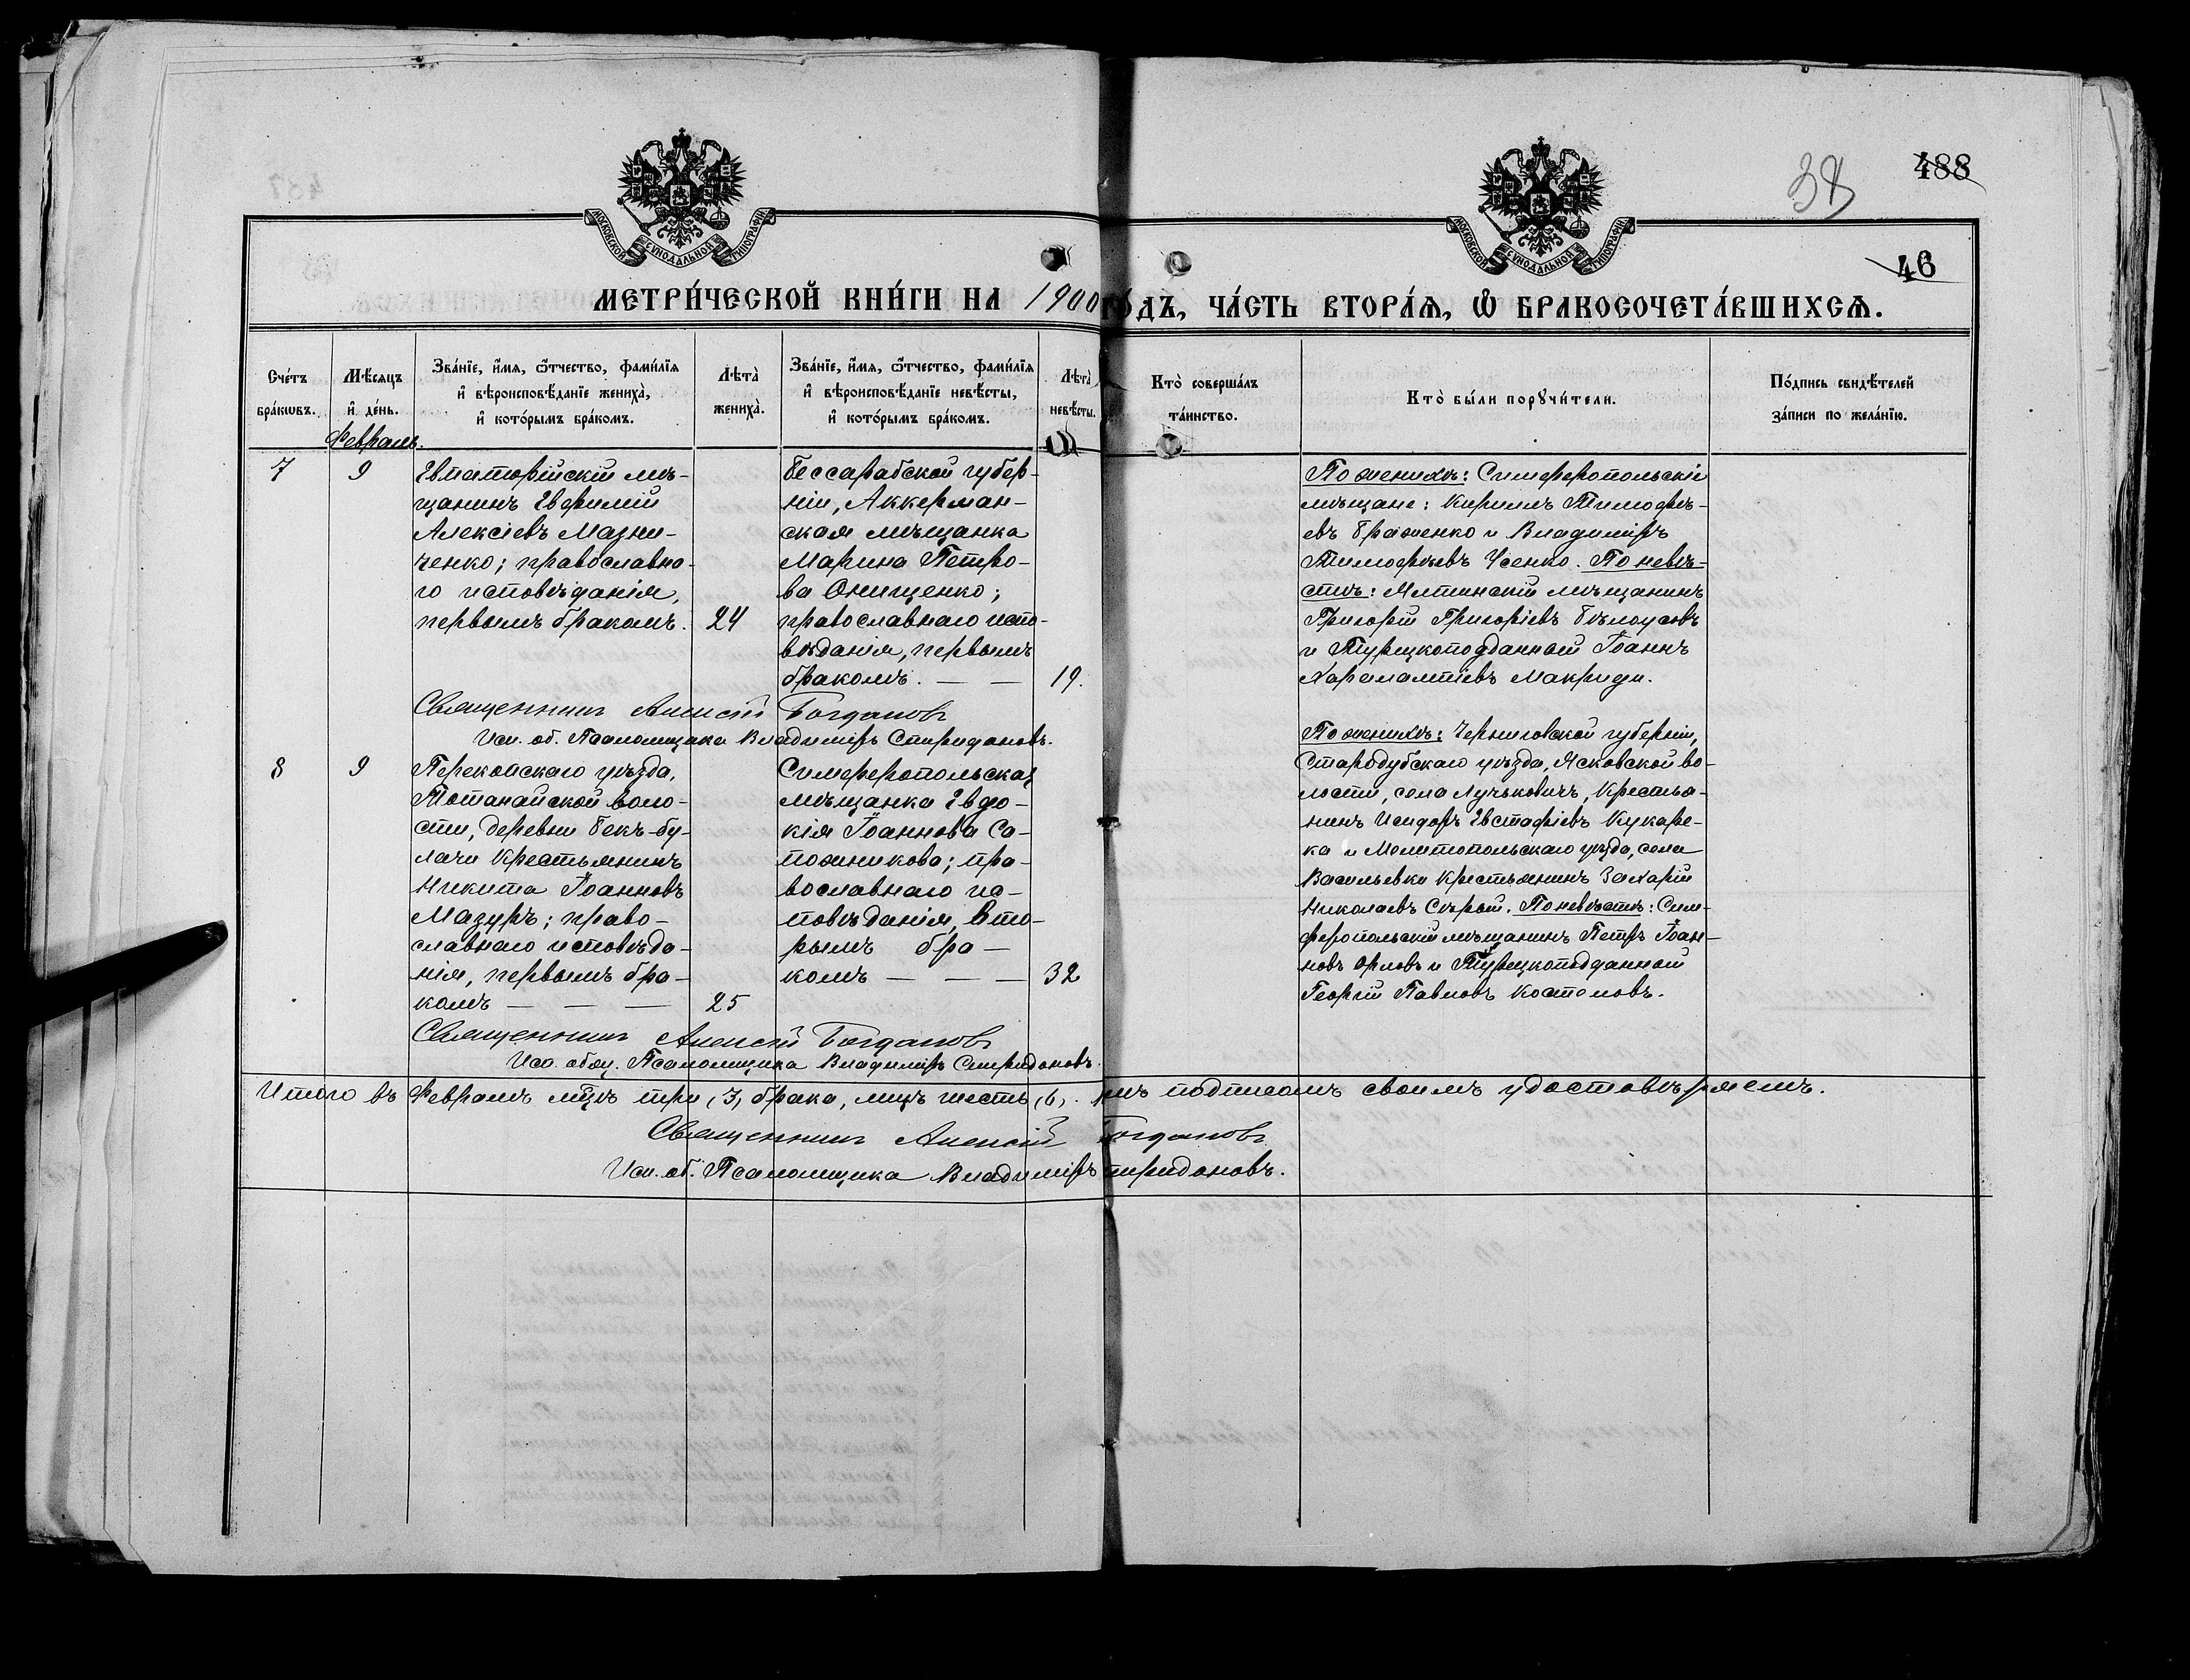 МОСКОВСКОЙ СΥНОДАЛЬНОЙ ТИПОГРАФІИ
МОСКОВСКОЙ СΥНОДАЛЬНОЙ ТИПОГРАФІИ
38
488
46
МЕТРИ́ЧЕСКОЙ КНИ́ГИ НА 1900 ГО́ДЪ, ЧА́СТЬ ВТОРА́Ѧ, Ѡ БРАКОСОЧЕТА́ВШИХСѦ.
Сче́тъ
бра́кѡвъ.
Мѣ́сѧцъ
и҆ де́нь.
Зва́нїе, и҆́мѧ, ѻ҆́тчество, фами́лїѧ
и҆ вѣроисповѣ́данїе жениха̀,
и҆ кото́рымъ бра́комъ.
Лѣта̀
жениха̀.
Зва́нїе, и҆́мѧ, ѻ҆́тчество, фами́лїѧ
и҆ вѣроисповѣ́данїе невѣ́сты,
и҆ кото́рымъ бра́комъ.
Лѣта̀
невѣ́сты.
Кто̀ соверша́лъ
та́инство.
Кто̀ бы́ли порꙋчи́тели.
По́дпись свидѣ́телей
за́писи по жела́нїю.
Февраль.
7
9
Евпаторійскій мѣ-
щанинъ Евфимій
Алексіевъ Мазни-
ченко; православна-
го исповѣданія,
первымъ бракомъ.
24
Бессарабской губер-
ніи, Аккерман-
ская мѣщанка
Марина Петро-
ва Онищенко;
православнаго испо-
вѣданія, первымъ
бракомъ. — —
19.
По женихѣ: Симферопольскіе
мѣщане: Кириллъ Тимофѣ-
евъ Браженко и Владиміръ
Тимофѣевъ Усенко. По невѣ-
стѣ: Ялтинскій мѣщанинъ
Григорій Григоріевъ Бѣлоусовъ
и Турецкоподданный Іоаннъ
Харалампіевъ Макриди.
Священникъ Алексій Богдановъ
Исп. об. Псаломщика Владиміръ Спиридоновъ.
8
9
Перекопскаго уѣзда,
Тотанайской воло-
сти, деревни Бекъ-бу-
лачи крестьянинъ
Никита Іоанновъ
Мазуръ; право-
славнаго исповѣда-
нія, первымъ бра-
комъ — — —
25
Симферопольская
мѣщанка Евдо-
кія Іоаннова Са-
пожникова; пра-
вославнаго ис-
повѣданія, вто-
рымъ бра —
комъ — — —
32
По женихѣ: Черниговской губерніи,
Стародубскаго уѣзда, Лсковской во-
лости, села Лучьковичъ, крестья-
нинъ Исидоръ Евстафіевъ Кукаре-
ка и Мелитопольскаго уѣзда, села
Васильевки крестьянинъ Захарій
Николаевъ Сѣрый. По невѣстѣ: Сим-
феропольскій мѣщанинъ Петръ Іоан-
новъ Орловъ и Турецкоподданный
Георгій Павловъ Костоновъ.
Священникъ Алексій Богдановъ
Исп. обяз. Псаломщика Владиміръ Спиридоновъ.
Итого въ Февралѣ мц̃ѣ три (3) брака, лицъ шесть (6). подписомъ своимъ удостовѣряемъ.
Священникъ Алексій Богдановъ
Исп. об. Псаломщика Владиміръ Спиридоновъ.